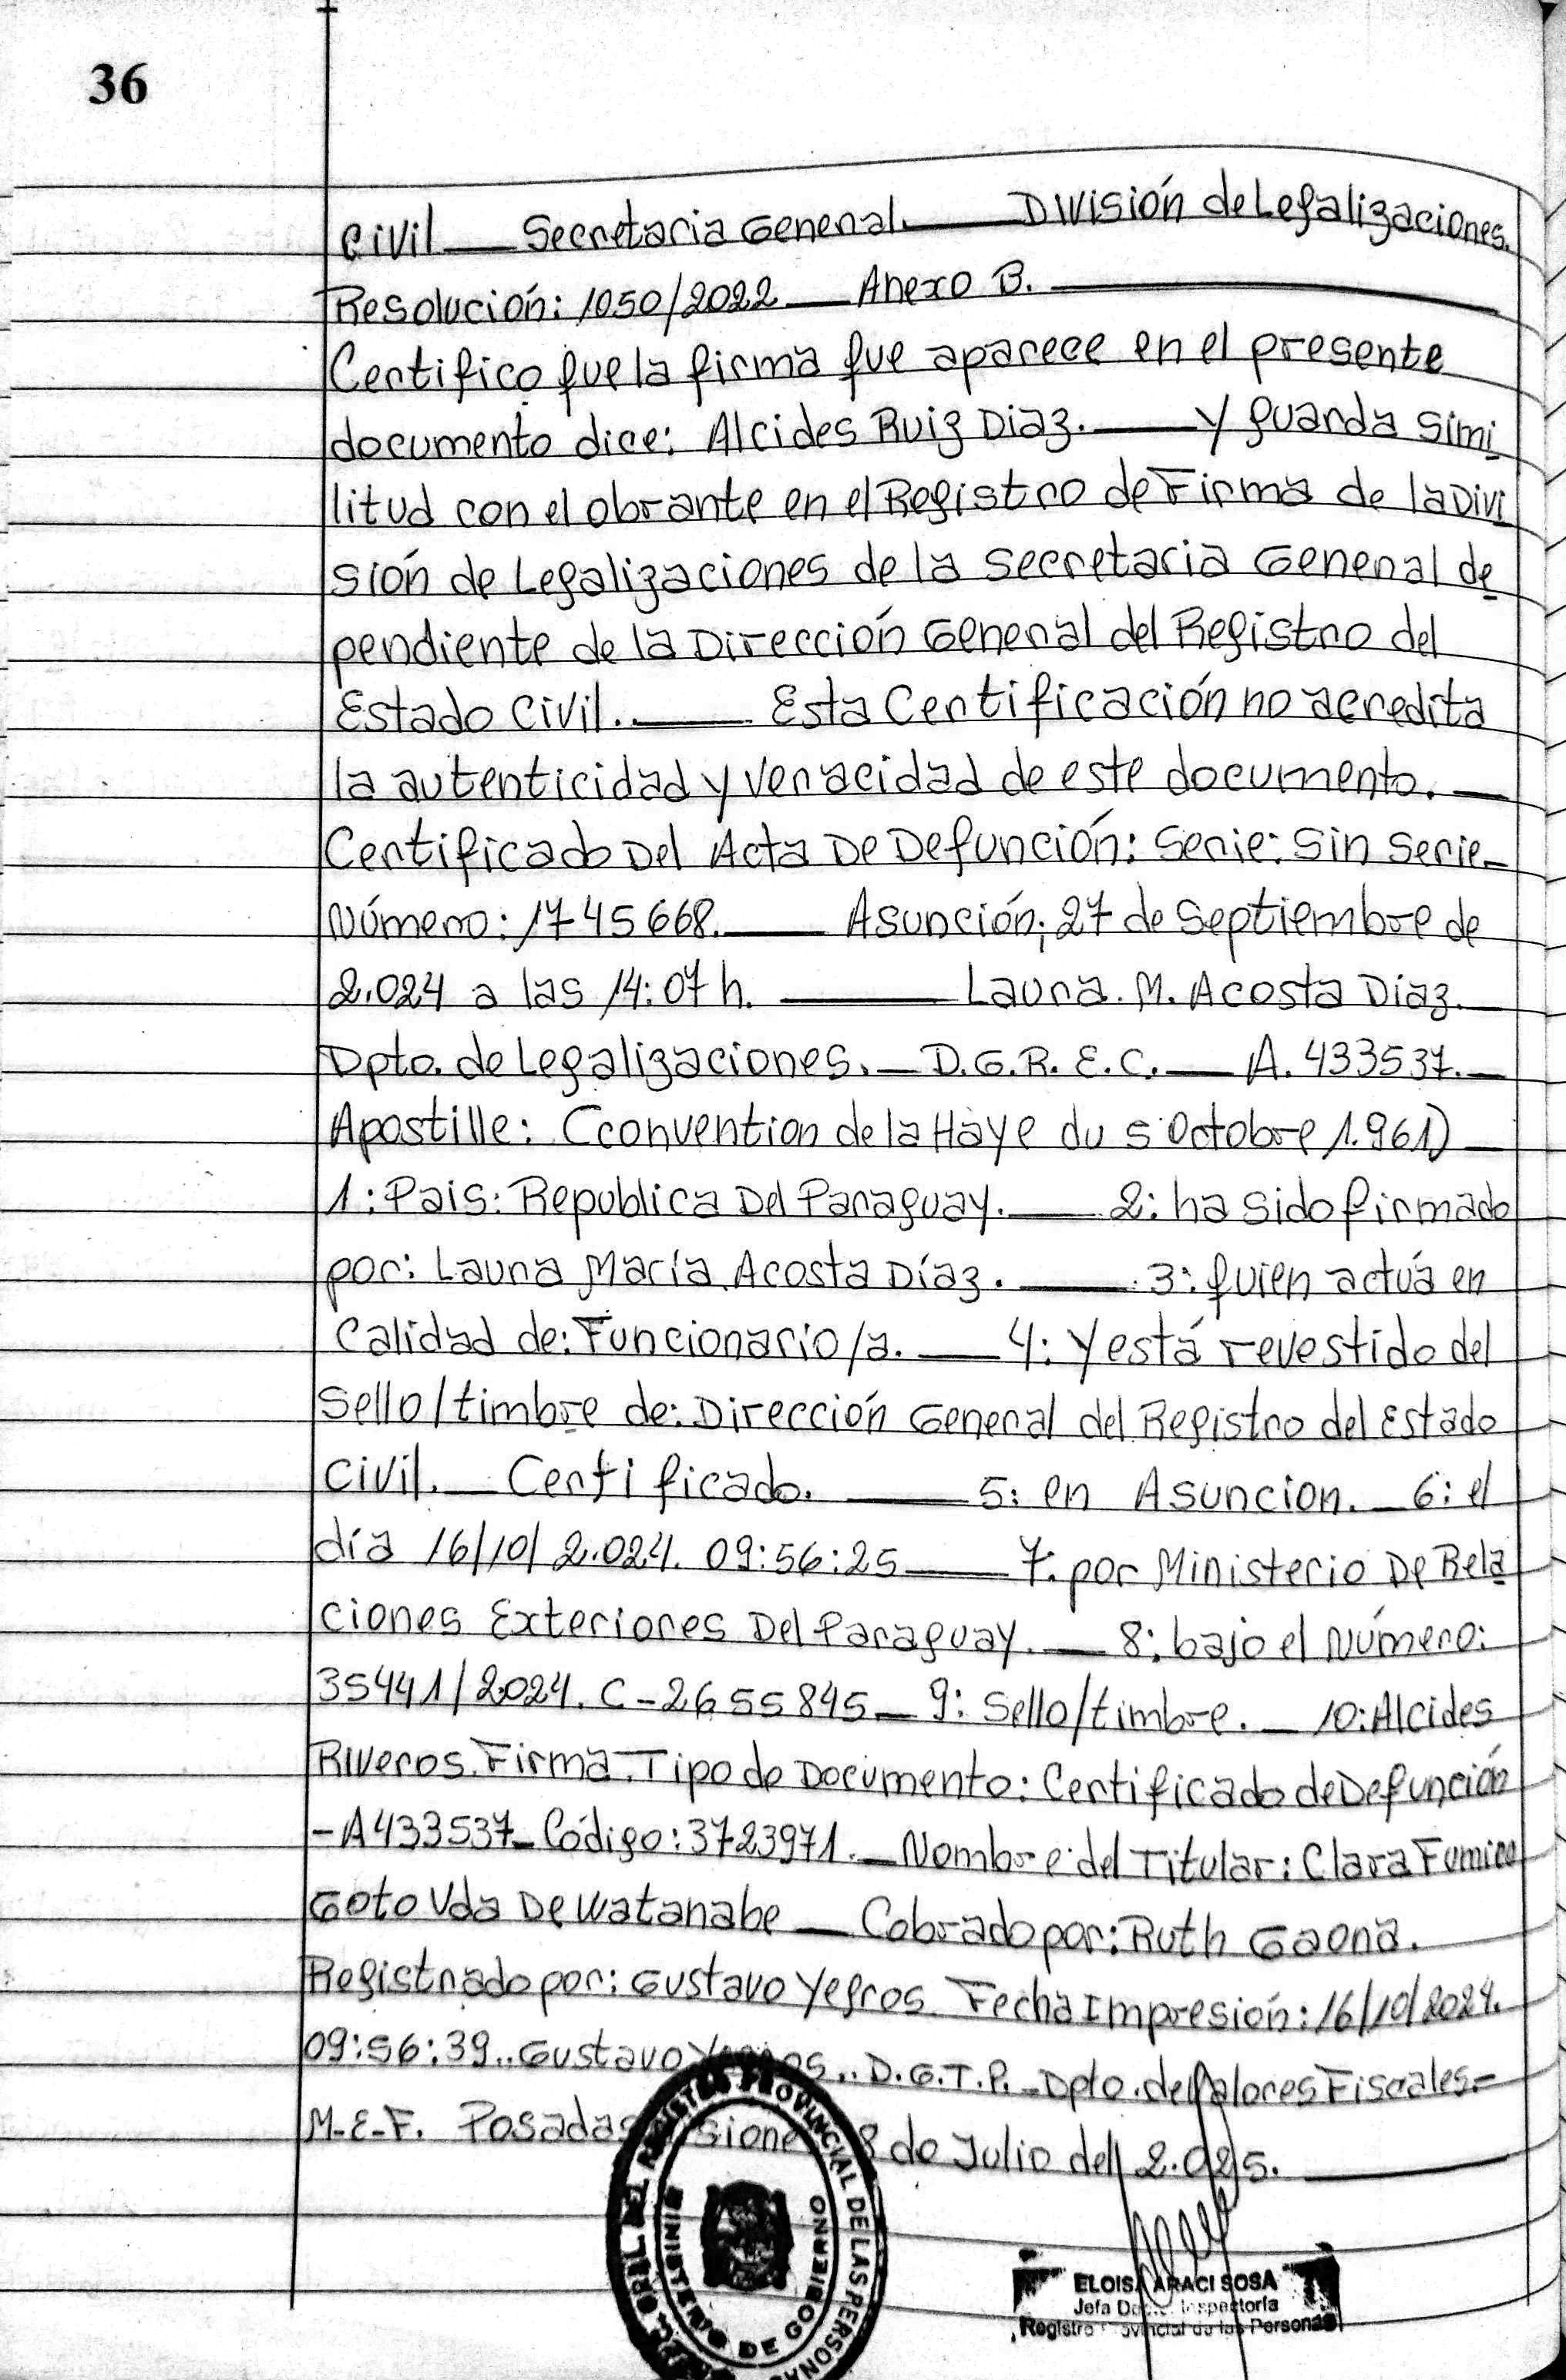 36
Civil __ Secretaria General. __ División de Legalizaciones.
Resolución: 1050/2022 __ Anexo B. __
Certifico que la firma que aparece en el presente
documento dice: Alcides Ruiz Diaz. __ y guarda simi
litud con el obrante en el Registro de Firma de la Divi
sión de Legalizaciones de la Secretaria General de
pendiente de la Dirección General del Registro del
Estado Civil. __ Esta Certificación no acredita
la autenticidad y veracidad de este documento. __
Certificado Del Acta De Defunción: Serie: Sin Serie _
Número: 1745668. __ Asunción; 27 de Septiembre de
2.024 a las 14:07 h. __ Laura. M. Acosta Diaz. __
Dpto. de Legalizaciones. __ D.G.R.E.C. __ A. 433537. __
Apostille: (Cconvention de la Haye du 5 Octobre 1.961) __
1: Pais: Republica Del Paraguay. __ 2: ha sido firmado
por: Laura María Acosta Díaz. __ 3: quien actúa en
Calidad de: Funcionario/a. __ 4: y está revestido del
Sello/timbre de: Dirección General del Registro del Estado
Civil. __ Certificado. __ 5: en Asuncion. _ 6: el
día 16/10/2.024. 09:56:25 __ 7: por Ministerio De Rela
ciones Exteriores Del Paraguay. __ 8: bajo el Número:
35441/2.024. C-2655845 _ 9: Sello/timbre. _ 10: Alcides
Riveros. Firma. Tipo de Documento: Certificado de Defunción
- A433537 _ Código: 3723971. _ Nombre del Titular: Clara Fumico
Goto Vda De Watanabe __ Cobrado por: Ruth Gaona.
Registrado por: Gustavo Yegros. Fecha Impresión: 16/10/2024.
09:56:39.. Gustavo Yegros.. D.G.T.P. _ Dpto. de Valores Fiscales. -
M-E-F. Posadas 8 de Julio del 2.025. __
REGISTRO PROVINCIAL DE LAS PERSONAS
MINISTERIO DE GOBIERNO
ELOISA ARACI SOSA
Jefa Inspectoría
Registro Provincial de las Personas